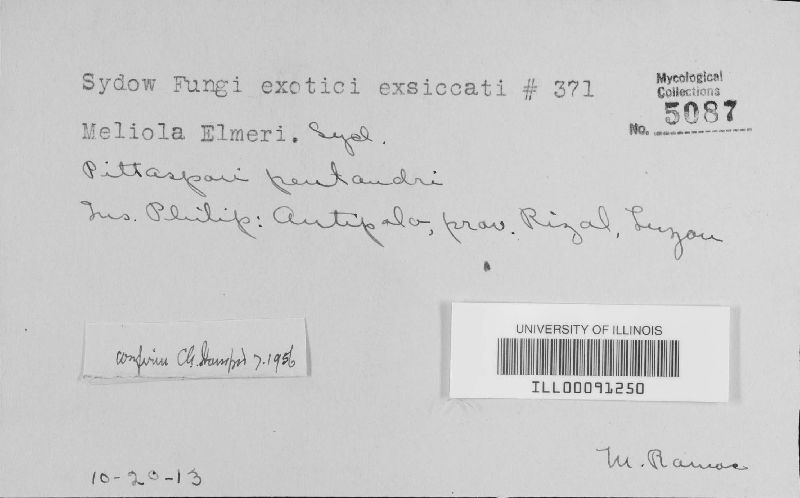 Sydow Fungi exotici exsiccati # 371
Mycological
Collections
No. 5087
Meliola Elmeri. Syd.
Pittaspori pentandri
Ins. Philip: Antipolo, prov. Rizal, Luzon
UNIVERSITY OF ILLINOIS
ILL00091250
confirm 7.1956
M. Ramos
10-20-13